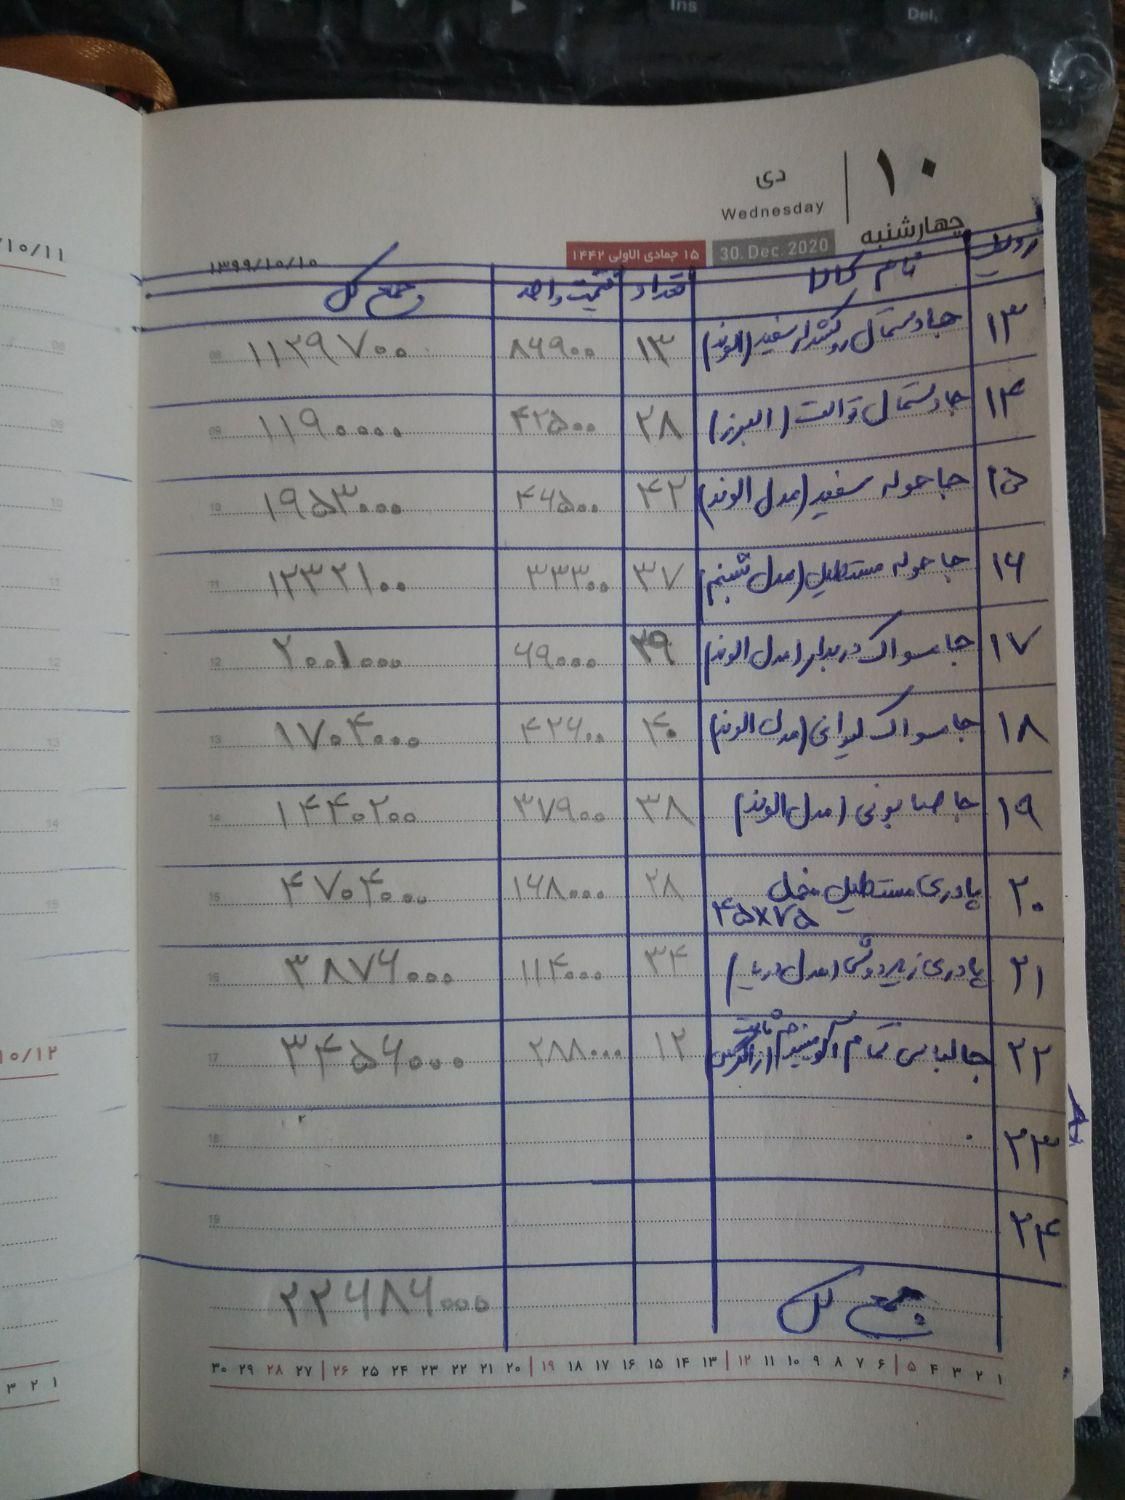 Ins
Del.
۱۰/۱۱
۱۰/۱۲
۱۰
دی
Wednesday
چهارشنبه
30. Dec. 2020
۱۵ جمادی الاولی ۱۴۴۲
۱۳۹۹/۱۰/۱۰
ردیف نام کالا تعداد قیمت واحد جمع کل
۱۳ جادستمال روکشدار سفید (الوند) ۱۳ ۸۶۹۰۰ ۱۱۲۹۷۰۰
۱۴ جادستمال توالت (البرز) ۲۸ ۴۲۵۰۰ ۱۱۹۰۰۰۰
۱۵ جاحوله سفید (مدل الوند) ۴۲ ۴۶۵۰۰ ۱۹۵۳۰۰۰
۱۶ جاحوله مستطیل (مدل شبنم) ۳۷ ۳۳۳۰۰ ۱۲۳۲۱۰۰
۱۷ جامسواک دربدار (مدل الوند) ۲۹ ۶۹۰۰۰ ۲۰۰۱۰۰۰
۱۸ جامسواک لیوانی (مدل الوند) ۴۰ ۴۲۶۰۰ ۱۷۰۴۰۰۰
۱۹ جاصابونی (مدل الوند) ۳۸ ۳۷۹۰۰ ۱۴۴۰۲۰۰
۲۰ پادری مستطیل مخمل ۲۸ ۱۶۸۰۰۰ ۴۷۰۴۰۰۰
۴۵×۷۵
۲۱ پادری زیردوشی (مدل دریا) ۳۴ ۱۱۴۰۰۰ ۳۸۷۶۰۰۰
۲۲ جالباسی تمام آلومینیوم ۱۲ ۲۸۸۰۰۰ ۳۴۵۶۰۰۰
۲۳
۲۴
جمع کل ۲۲۶۸۶۰۰۰
۱ ۲ ۳ ۴ ۵ ۶ ۷ ۸ ۹ ۱۰ ۱۱ ۱۲ ۱۳ ۱۴ ۱۵ ۱۶ ۱۷ ۱۸ ۱۹ ۲۰ ۲۱ ۲۲ ۲۳ ۲۴ ۲۵ ۲۶ ۲۷ ۲۸ ۲۹ ۳۰